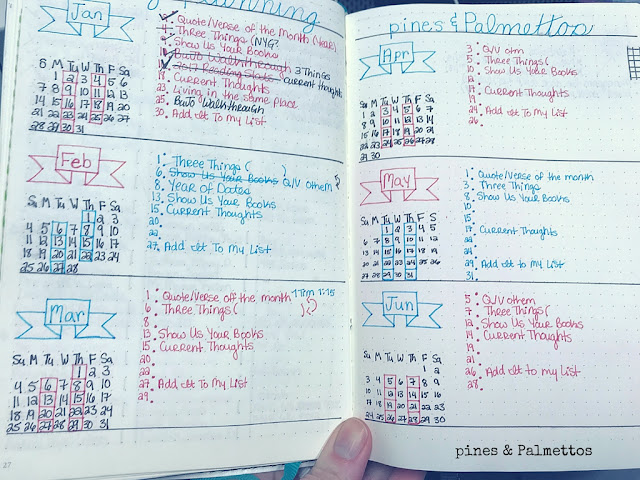 planning
Jan
S M Tu W Th F Sa
1 2 3 4 5 6
7 8 9 10 11 12 13
14 15 16 17 18 19 20
21 22 23 24 25 26 27
28 29 30 31
Quote/Verse of the Month (Year)
4 Three Things (NYG?
Show Us Your Books
BuJo Walkthrough 3 Things
2017 Reading Stats current thoughts
18 Current Thoughts
23 Living in the same place
25 BuJo Walkthrough
30 Add It To My List
Feb
Su M Tu W Th F Sa
1 2 3
4 5 6 7 8 9 10
11 12 13 14 15 16 17
18 19 20 21 22 23 24
25 26 27 28
1 Three Things ( )
6 Show Us Your Books Q/V othem
8 Year of Dates
13 Show Us Your Books
15 Current Thoughts
20
22
27 Add It To My List
Mar
Su M Tu W Th F Sa
1 2 3
4 5 6 7 8 9 10
11 12 13 14 15 16 17
18 19 20 21 22 23 24
25 26 27 28 29 30 31
1 Quote/Verse off the month 1 Tim 1:15
6 Three Things ( )
8
13 Show Us Your Books
15 Current Thoughts
20
22
27 Add It To My List
29
27
pines & Palmettos
Apr
Su M Tu W Th F Sa
1 2 3 4 5 6 7
8 9 10 11 12 13 14
15 16 17 18 19 20 21
22 23 24 25 26 27 28
29 30
3 Q/V otm
5 Three Things (
10 Show Us Your Books
12
17 Current Thoughts
19
24 Add It To My List
26
May
Su M Tu W Th F S
1 2 3 4 5
6 7 8 9 10 11 12
13 14 15 16 17 18 19
20 21 22 23 24 25 26
27 28 29 30 31
1 Quote/Verse of the month
3 Three Things
8 Show Us Your Books
10
15
17 Current Thoughts
22
24
29 Add It To My List
31
Jun
Su M Tu W Th F Sa
1 2
3 4 5 6 7 8 9
10 11 12 13 14 15 16
17 18 19 20 21 22 23
24 25 26 27 28 29 30
5 Q/V othem
7 Three Things (
12 Show Us Your Books
14 Current Thoughts
19
21
26 Add It to my List
28
pines & Palmettos